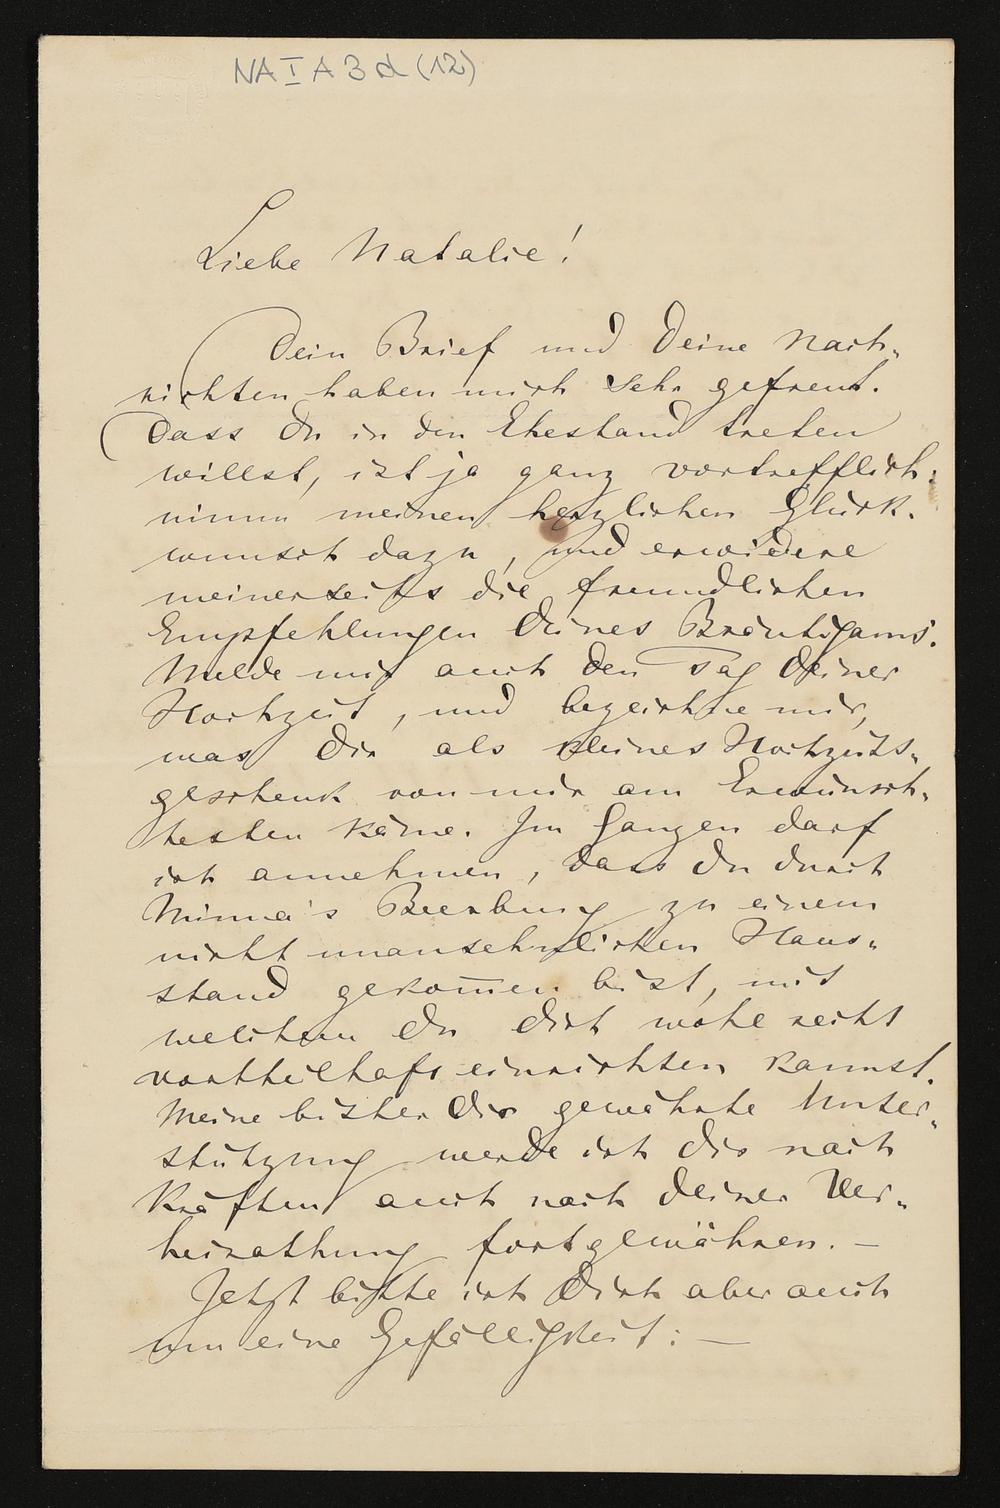 NA I A 3 d (12)
Liebe Natalie!
Dein Brief und Deine Nach-
richten haben mich sehr gefreut.
Dass Du in den Ehestand treten
willst, ist ja ganz vortrefflich:
nimm meinen herzlichen Glück-
wunsch dazu, und erwidere
meinerseits die freundlichen
Empfehlungen Deines Bräutigams.
Melde mir auch den Tag Deiner
Hochzeit, und bezeichne mir,
was Dir als kleines Hochzeits-
geschenk von mir am Erwünsch-
testen käme. Im Ganzen darf
ich annehmen, dass Du durch
Minna's Beerbung zu einem
nicht unansehnlichen Haus-
stand gekom̅en bist, mit
welchem Du Dich wohl recht
vortheilhaft einrichten kannst.
Meine bisher Dir gewährte Unter-
stützung werde ich Dir nach
Kräften auch nach Deiner Ver-
heirathung fortgewähren. —
Jetzt bitte ich Dich aber auch
um eine Gefälligkeit: —